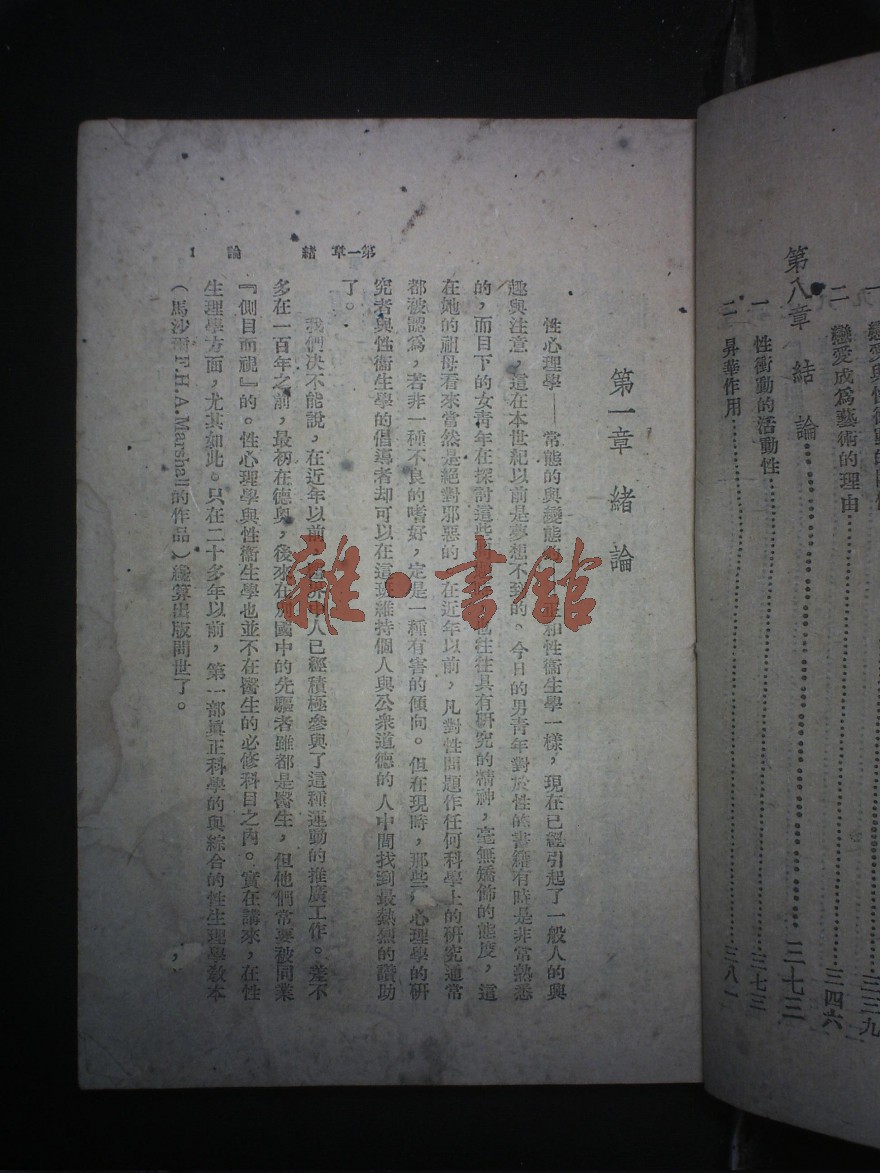 一 戀愛與性衝動的關係
二 戀愛成爲藝術的理由……三四六
三三九
第八章 結論……三七三
一 性衝動的活動性……三七三
二 昇華作用……三八一
第一章 緒論 1
第一章 緒論
性心理學——常態的與變態的，正和性衞生學一樣，現在已經引起了一般人的興
趣與注意，這在本世紀以前是夢想不到的。今日的男青年對於性的書籍有時是非常熟悉
的，而目下的女青年在探討這些 也往往具有研究的精神，毫無矯飾的態度，這
在她的祖母看來當然是絕對邪惡的。在近年以前，凡對性問題作任何科學上的研究通常
都被認爲，若非一種不良的嗜好，定是一種有害的傾向。但在現時，那些，心理學的研
究者與性衞生學的倡導者却可以在這班維持個人與公衆道德的人中間找到最熱烈的讚助
了。
我們決不能說，在近年以前， 中人已經積極參與了這種運動的推廣工作。差不
多在一百年之前，最初在德奧，後來在別國中的先驅者雖都是醫生，但他們常要被同業
『側目而視』的。性心理學與性衞生學也並不在醫生的必修科目之內。實在講來，在性
生理學方面，尤其如此。只在二十多年以前，第一部眞正科學的與綜合的性生理學敎本
（馬沙爾F.H.A.Marshall的作品）纔算出版問世了。
雜·書館